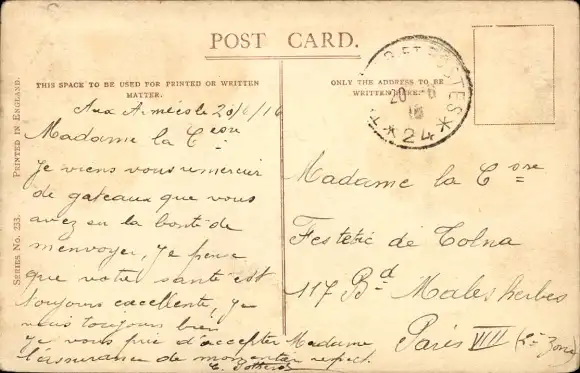 POST CARD.
THIS SPACE TO BE USED FOR PRINTED OR WRITTEN
MATTER.
Aux Armées le 20/6/16
Madame la Csse
Je viens vous remercier
de gateaux que vous
avez eu la bonté de
m'envoyer, Je pense
que votre santé est
toujours excellente, Je
vais toujours bien
Je vous prie d'accepter Madame
l'assurance de mon entier respect.
ONLY THE ADDRESS TO BE
WRITTEN HERE.
ET POSTES
20 6
16
* 24 *
Madame la Csse
Festetic de Tolna
117 Bd Malesherbes
Paris VIII
PRINTED IN ENGLAND.
SERIES NO. 233.